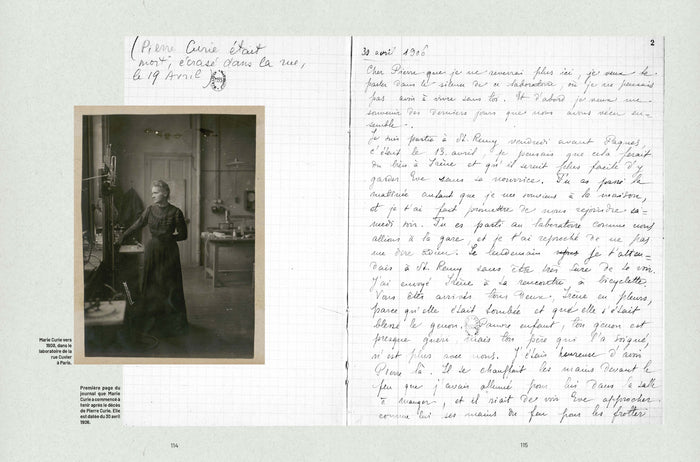 (Pierre Curie était
mort, écrasé dans la rue,
le 19 Avril)
Marie Curie vers
1908, dans le
laboratoire de la
rue Cuvier
à Paris.
Première page du
journal que Marie
Curie a commencé à
tenir après le décès
de Pierre Curie. Elle
est datée du 30 avril
1906.
114
2
30 avril 1906
Cher Pierre que je ne reverrai plus ici, je veux te
parler dans le silence de ce laboratoire, où je ne pensais
pas avoir à vivre sans toi. Et d'abord je veux me
souvenir des derniers jours que nous avons vécu en-
semble.
Je suis partie à St. Remy vendredi avant Paques,
c'était le 13 avril. Je pensais que cela ferait
du bien à Irène et qu'il serait plus facile d'y
garder Eve sans sa nourrice. Tu as passé la
matinée autant que je me souviens à la maison,
et je t'ai fait promettre de nous rejoindre sa-
medi soir. Tu es parti au laboratoire comme nous
allions à la gare et je t'ai reproché de ne pas
me dire adieu. Le lendemain je t'atten-
dais à St. Remy sans être très sûre de te voir.
J'ai envoyé Irène à sa rencontre à bicyclette.
Vous êtes arrivés tous deux, Irène en pleurs,
parce qu'elle était tombée et que elle s'était
blessé le genou. Pauvre enfant, ton genou est
presque guéri mais ton père qui l'a soigné,
n'est plus avec nous. J'étais heureuse d'avoir
Pierre là. Il se chauffait les mains devant le
feu que j'avais allumé pour lui dans la salle
à manger, et il riait de voir Eve approcher
comme lui ses mains du feu pour les frotter
115